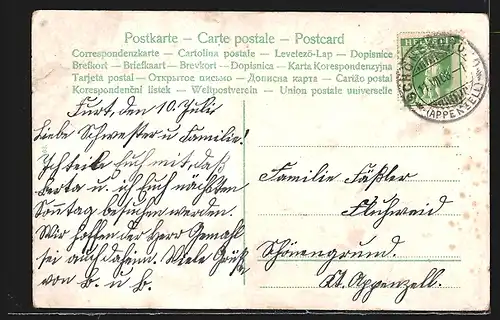 Postkarte - Carte postale - Postcard
Correspondenzkarte - Cartolina postale - Levelező-Lap - Dopisnice
Brefkort - Briefkaart - Brevkort - Dopisnica - Karta Korespondenzyjna
Tarjeta postal - Открытое письмо - Дописна карта - Carižo postal
Korespondenční listek - Weltpostverein - Union postale universelle
HELVETIA
(APPENZELL)
Furt, den 10 Juli
Liebe Schwester u Familie!
Ich teile Euch mit, daß
Berta u. ich Euch nächsten
Sonntag besuchen werden.
Wir hoffen der Herr Gemahl
sei auch daheim. Viele Grüße
von B. u B.
Familie Fäßler
Fluhweid
Schönengrund.
Kt. Appenzell.